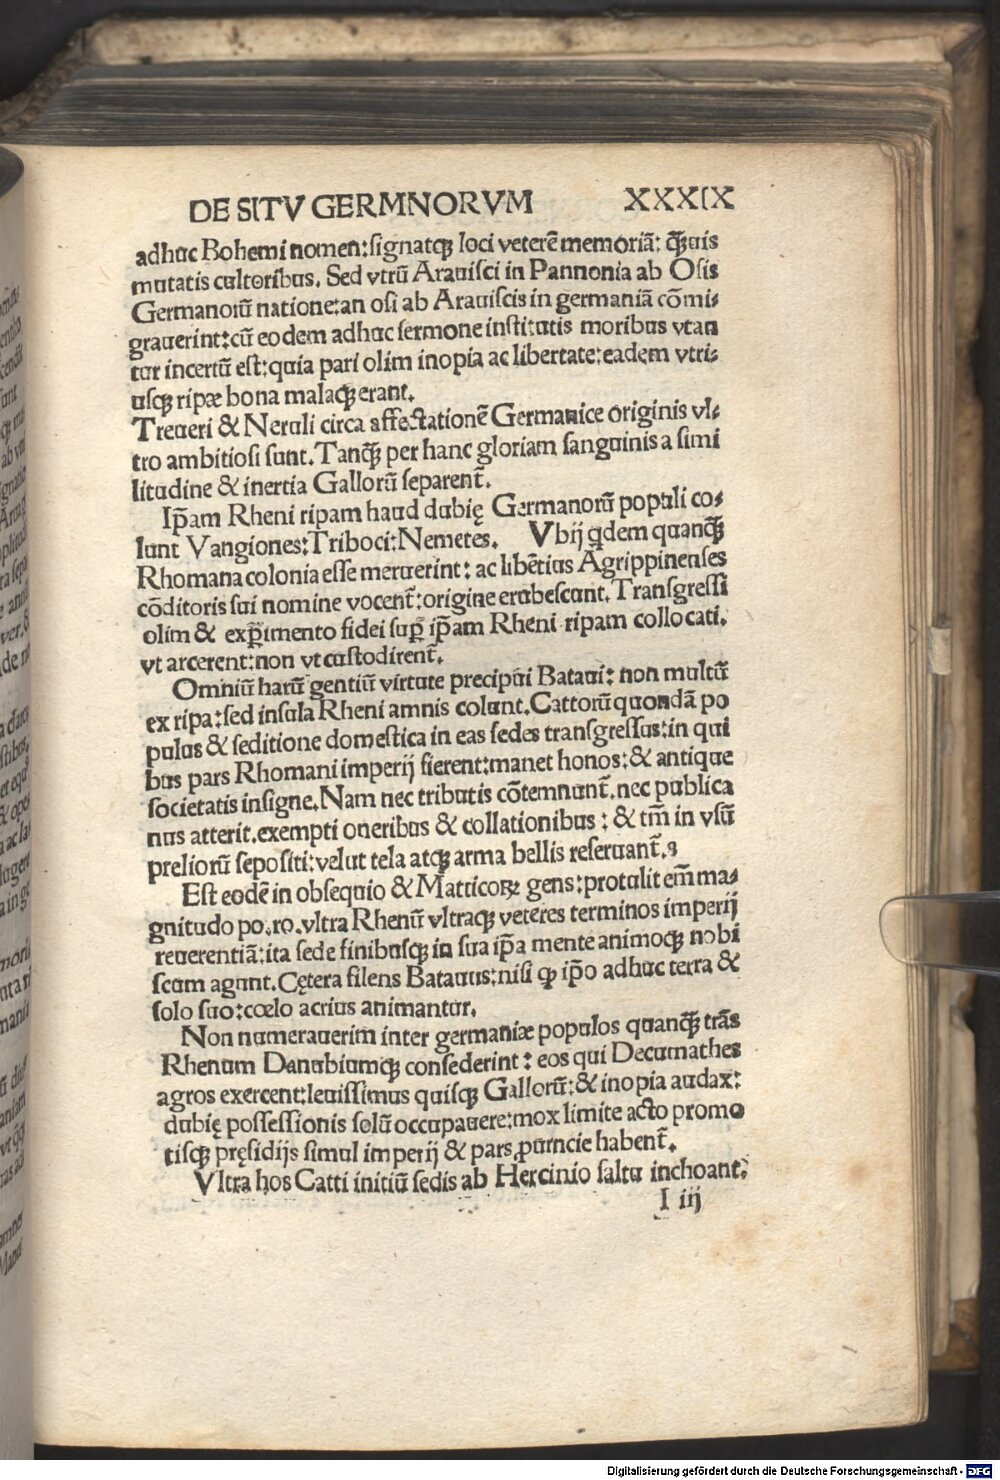 DE SITV GERMNORVM XXXIX
adhuc Bohemi nomen:signatq; loci veterē memoriā: q̄uis
mutatis cultoribus. Sed vtrū Arauisci in Pannonia ab Osis
Germanorū natione:an osi ab Arauiscis in germaniā cōmi-
grauerint:cū eodem adhuc sermone institutis moribus vtan
tur incertū est:quia pari olim inopia ac libertate:eadem vtri-
usq; ripæ bona malaq; erant.
Treueri & Neruli circa affectationē Germanice originis vl-
tro ambitiosi sunt. Tanq̄ per hanc gloriam sanguinis a simi
litudine & inertia Gallorū separent̄.
Ip̄am Rheni ripam haud dubię Germanorū populi co-
lunt Vangiones:Triboci:Nemetes. Vbij q̇dem quanq̄
Rhomana colonia esse meruerint: ac libētius Agrippinenses
cōditoris sui nomine vocent̄:origine erubescunt. Transgressi
olim & exp̄imento fidei sup̄ ip̄am Rheni ripam collocati.
vt arcerent:non vt custodirent̄.
Omniū harū gentiū virtute precipui Bataui: non multū
ex ripa:sed insula Rheni amnis colunt. Cattorū quondā po
pulus & seditione domestica in eas sedes transgressus:in qui
bus pars Rhomani imperij fierent:manet honos:& antique
societatis insigne. Nam nec tributis cōtemnunt̄. nec publica
nus atterit. exempti oneribus & collationibus: & tm̄ in vsū
preliorū sepositi:velut tela atq; arma bellis reseruant̄.
Est eodē in obsequio & Matticoꝝ gens:protulit em̄ ma-
gnitudo po. ro. vltra Rhenū vltraq; veteres terminos imperij
reuerentiā:ita sede finibusq; in sua ip̄a mente animoq; nobi
scum agunt. Cętera silens Batauus:nisi ꝙ ip̄o adhuc terra &
solo suo:cœlo acrius animantur.
Non numerauerim inter germaniæ populos quanq̄ trās
Rhenum Danubiumq; consederint: eos qui Decumathes
agros exercent:leuissimus quisq; Gallorū:& inopia audax:
dubię possessionis solū occupauere:mox limite acto promo
tisq; pręsidijs simul imperij & pars ꝓuincie habent̄.
Vltra hos Catti initiū sedis ab Hercinio saltu inchoant:
I iij
Digitalisierung gefördert durch die Deutsche Forschungsgemeinschaft - DFG